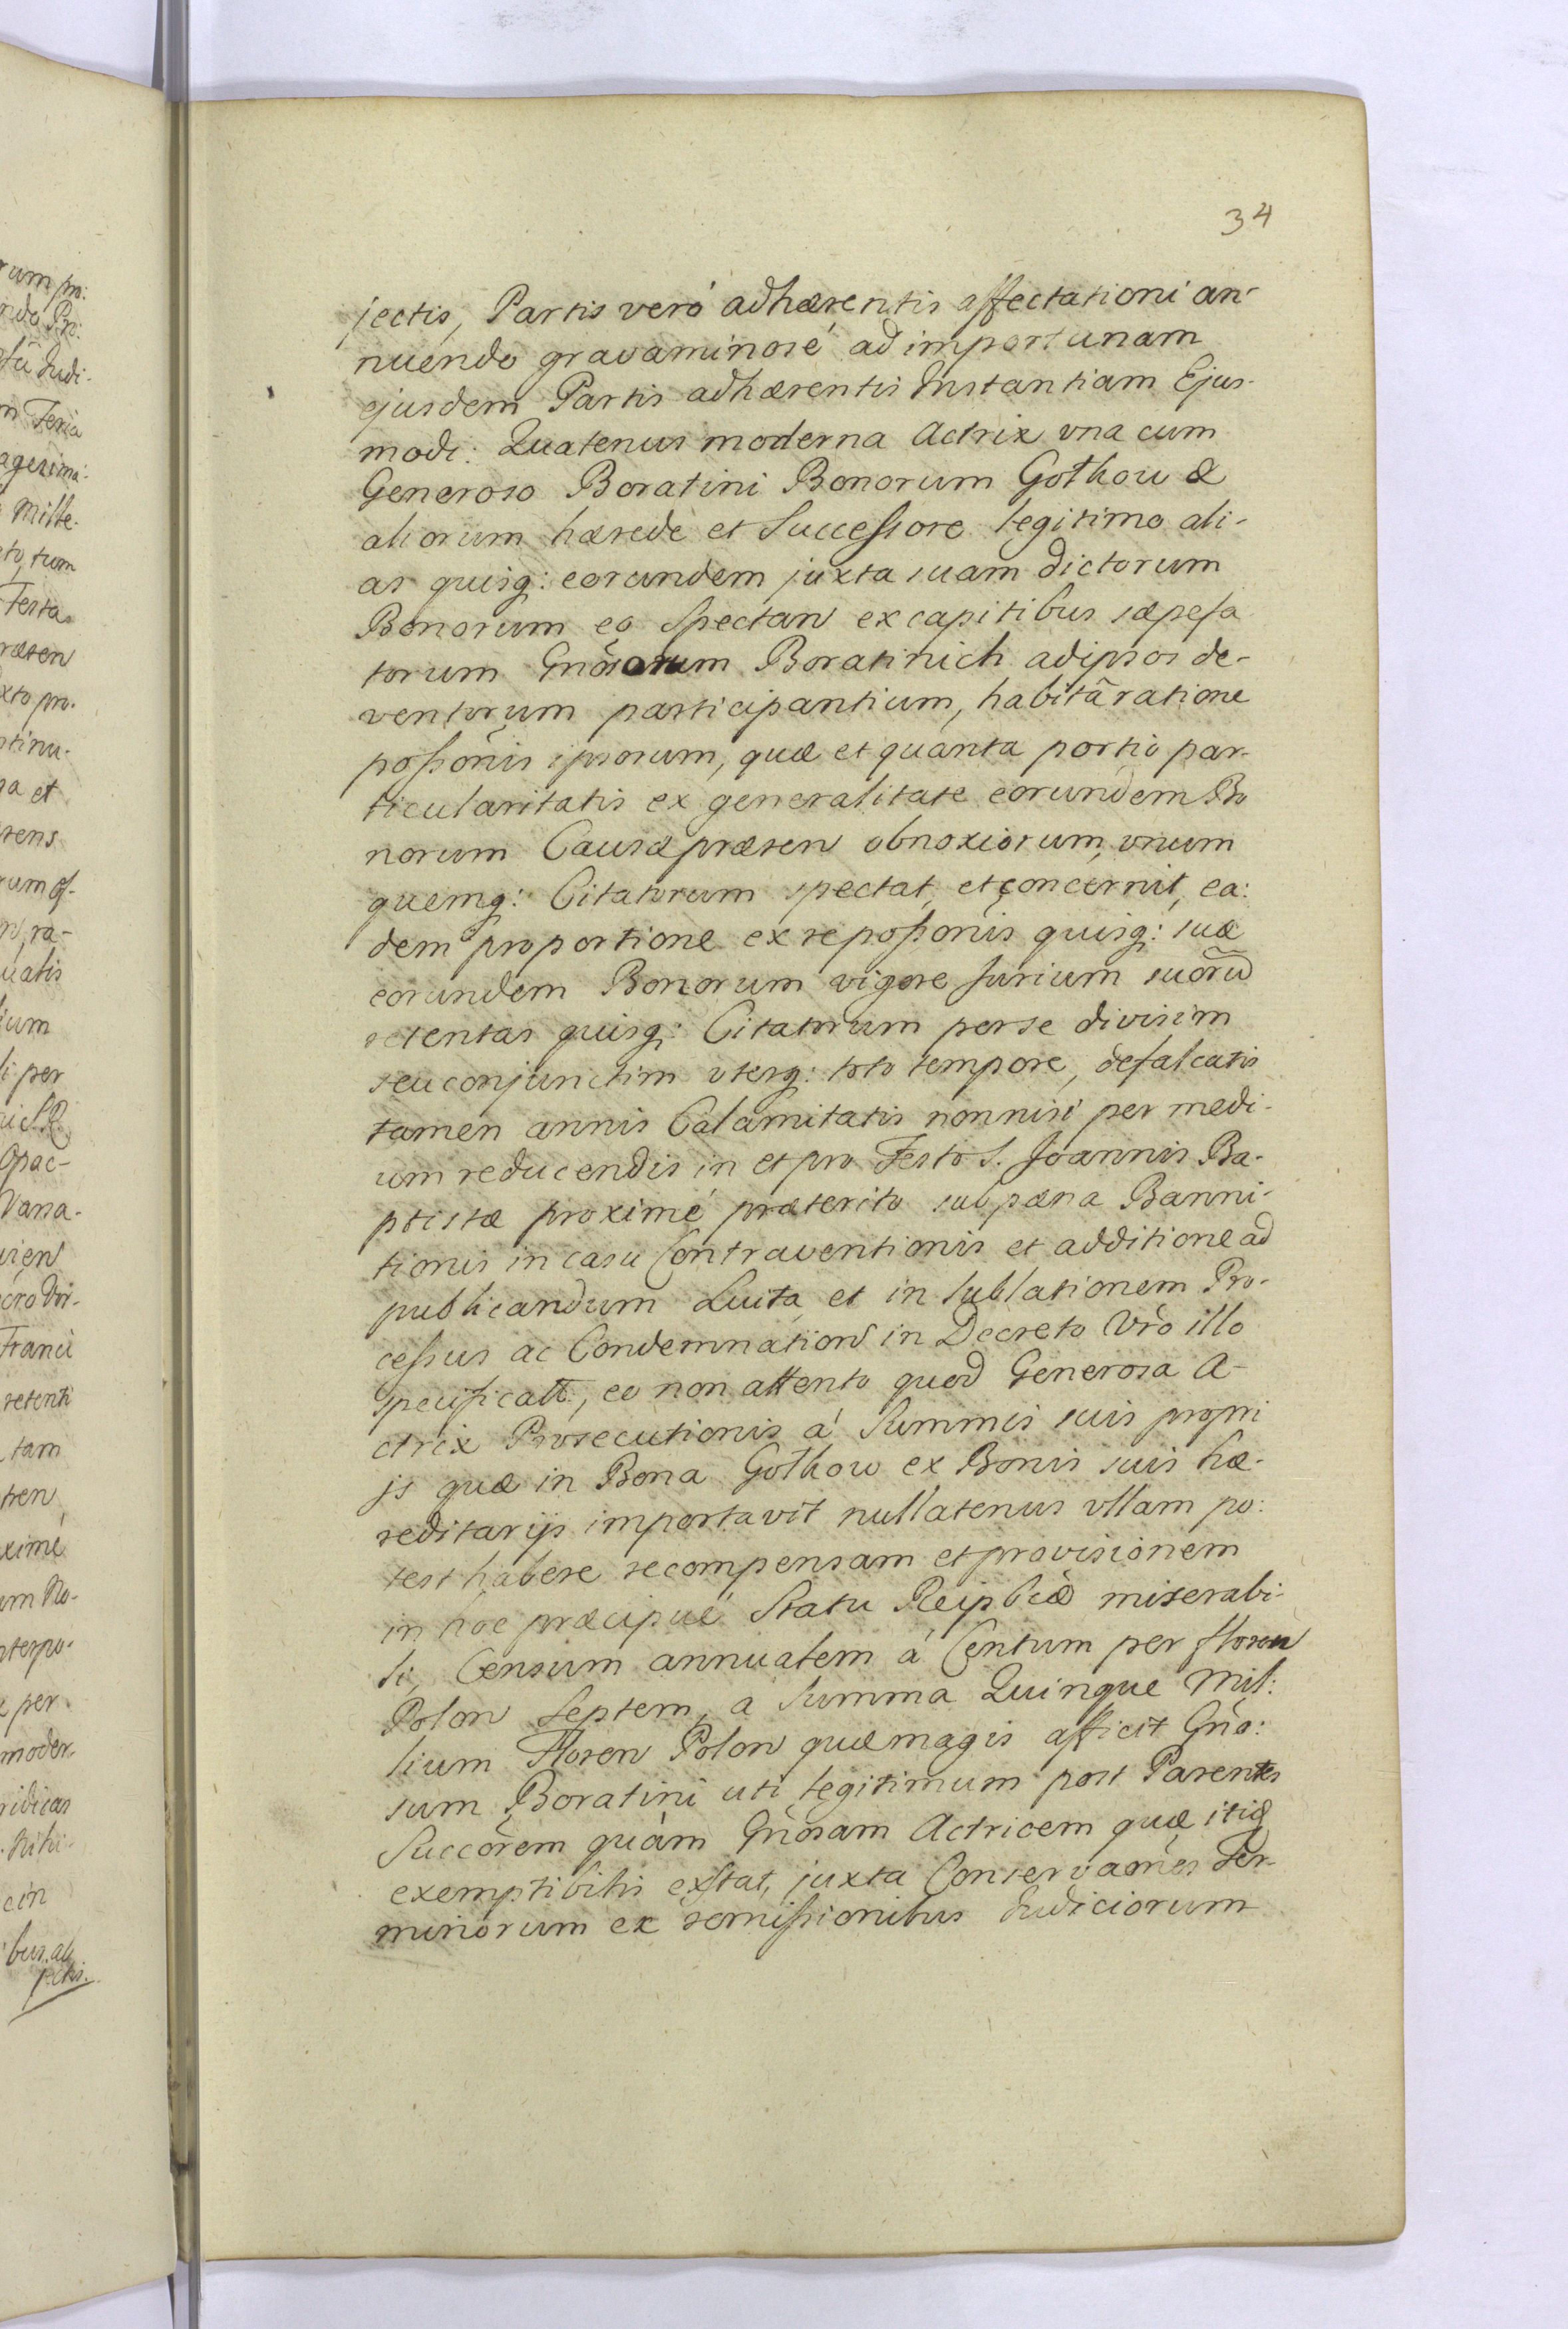 34
jectis, Partis veró adhærentis affectationi an-
nuendo gravaminosé ad importunam
ejusdem Partis adhærentis Instantiam Ejus-
modi: Quatenus moderna Actrix vna cum
Generoso Boratini Bonorum Gothow &
aliorum hærede et Successore legitimo ali-
as quisq: eorundem juxta suam dictorum
Bonorum eo Spectan ex capitibus sæpefa
torum Gnõsorum Boratinich ad ipsos de-
ventorum participantium, habitâ ratione
poßõnis ipsorum, quæ et quanta portio par-
ticularitatis ex generalitate eorundem Bo
norum Causæ præsen obnoxiorum, vnum
quemq: Citatorum spectat, et concernit, ea:
dem proportione ex repoßõnis quisq: suæ
eorundem Bonorum vigore Jurium suorũ
retentas quisq: Citatorum per se divisim
seu conjunctim vterq: toto tempore, defalcatis
tamen annis Calamitatis nonnisi per medi-
um reducendis in et pro Festo S. Joannis Ba-
ptistæ proximé præterito sub pæna Banni-
tionis in casu Contraventionis et additione ad
publicandum Luita et in sublationem Pro-
cessus ac Condemnation in Decreto Vr̃o illo
specificatt:, eo non attento quod Generosa A-
ctrix Prosecutionis á Summis suis propri
js quæ in Bona Gothow ex Bonis suis hæ-
reditarijs importavit nullatenus vllam po:
test habere recompensam et provisionem
in hoc præcipué Statu Reipbcæ miserabi-
li, Censum annuatem á Centum per floren
Polon Septem, a Summa Quinque Mil:
lium Floren Polon quæ magis afficit Gño:
sum Boratini uti legitimum post Parentes
Succõrem quàm Gñosam Actricem quæ itid
exemptibilis exstat, juxta Conservaões Ter-
minorum ex remissionibus Judiciorum
rum pro:
Judi-
Feria
Mille-
tum
Testa
ræsen
xto pro-
et
rum
ra-
uatis
per
Opac-
Vana-
Franci
retenti
tam
ximé
um No-
nterpo-
per
moder-
ridicas